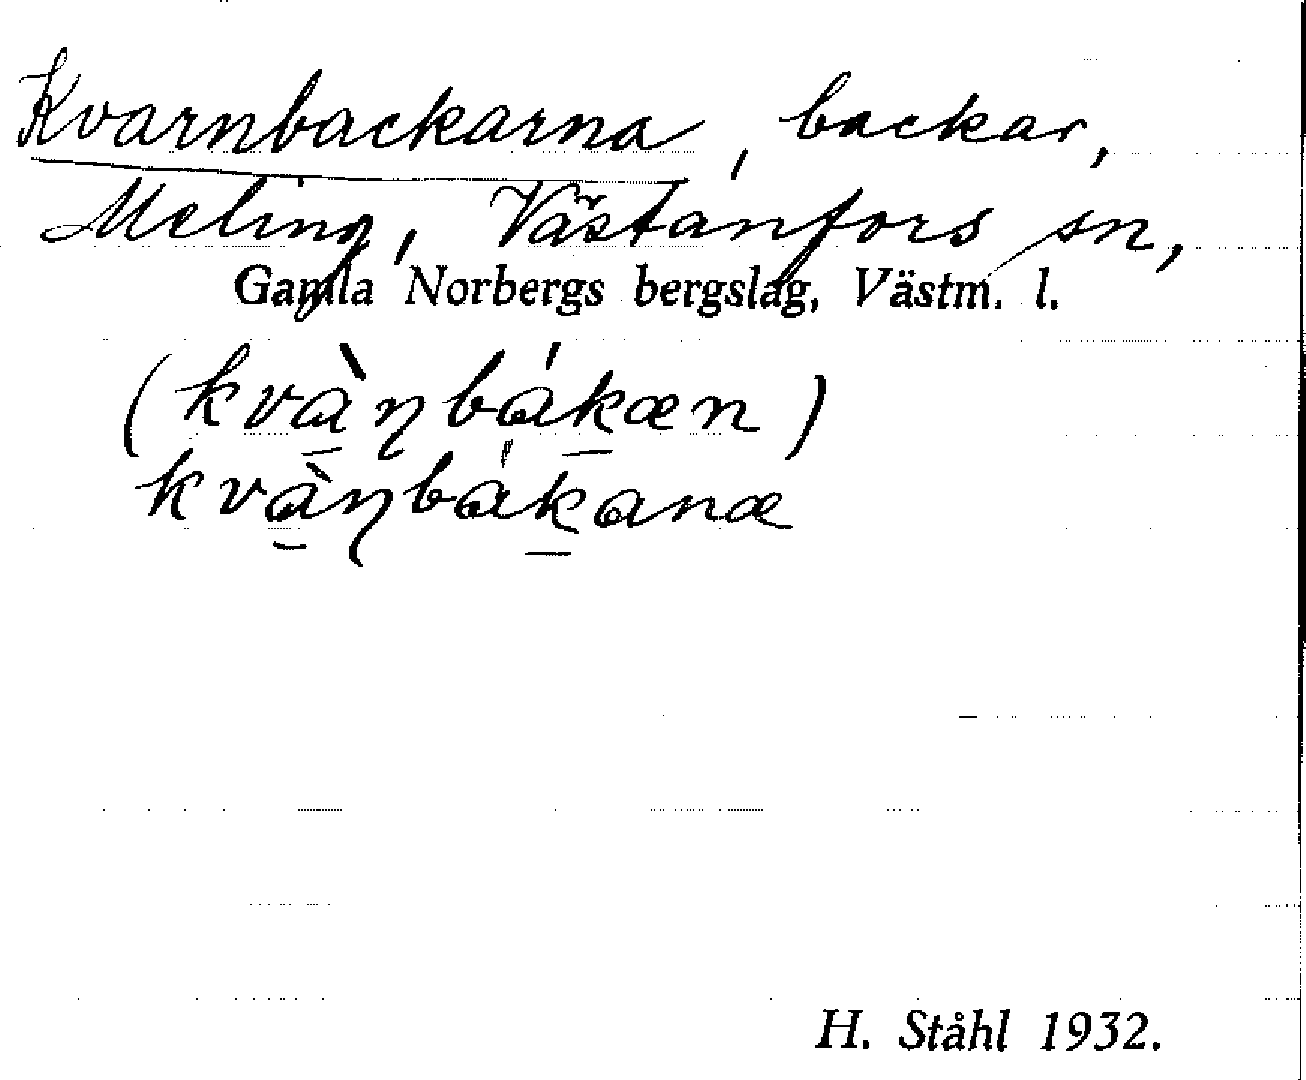 Kvarnbackarna, backar,
Meling, Västanfors sn,
Gamla Norbergs bergslag, Västm. l.
(kvàṇbákæn)
kvàṇbákanæ
H. Ståhl 1932.